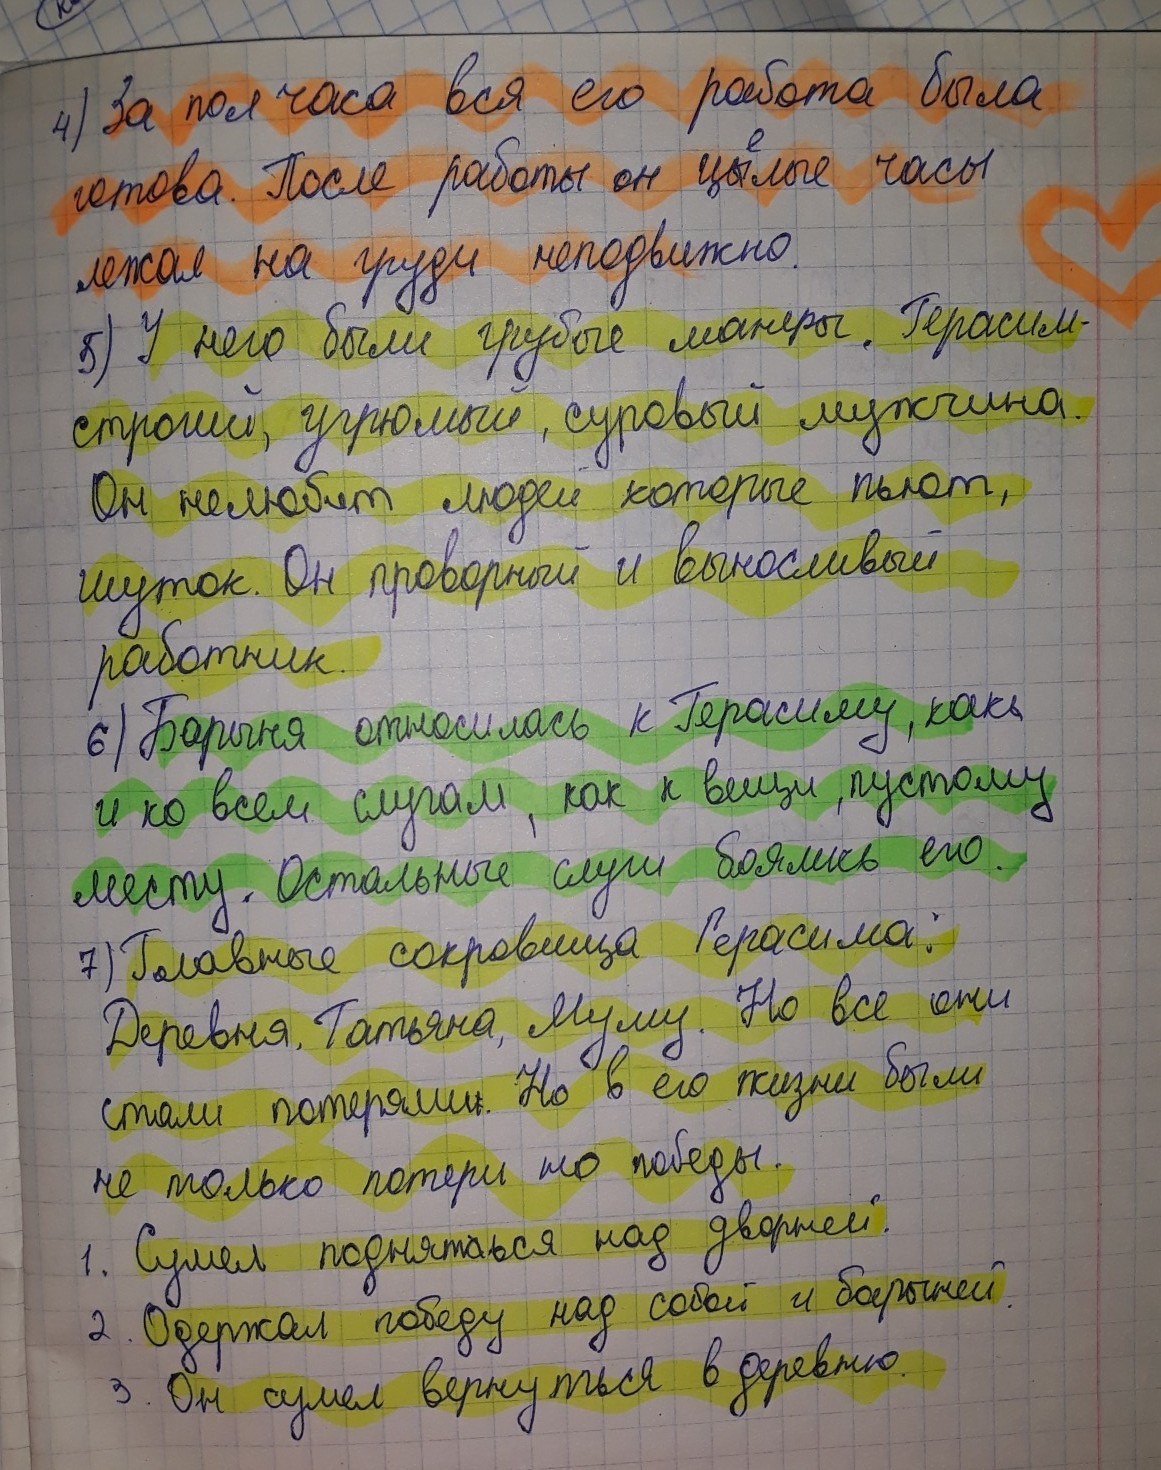 4) За пол часа вся его работа была
готова. После работы он целые часы
лежал на груди неподвижно.
5) У него были грубые манеры. Герасим-
строгий, угрюмый, суровый мужчина.
Он нелюбит людей которые пьют,
шуток. Он проворный и выносливый
работник.
6) Барыня относилась к Герасиму, как
и ко всем слугам, как к вещи, пустому
месту. Остальные слуги боялись его.
7) Главные сокровища Герасима:
Деревня, Татьяна, Муму. Но все они
стали потерями. Но в его жизни были
не только потери но победы.
1. Сумел подняться над дворней.
2. Одержал победу над собой и барыней.
3. Он сумел вернуться в деревню.